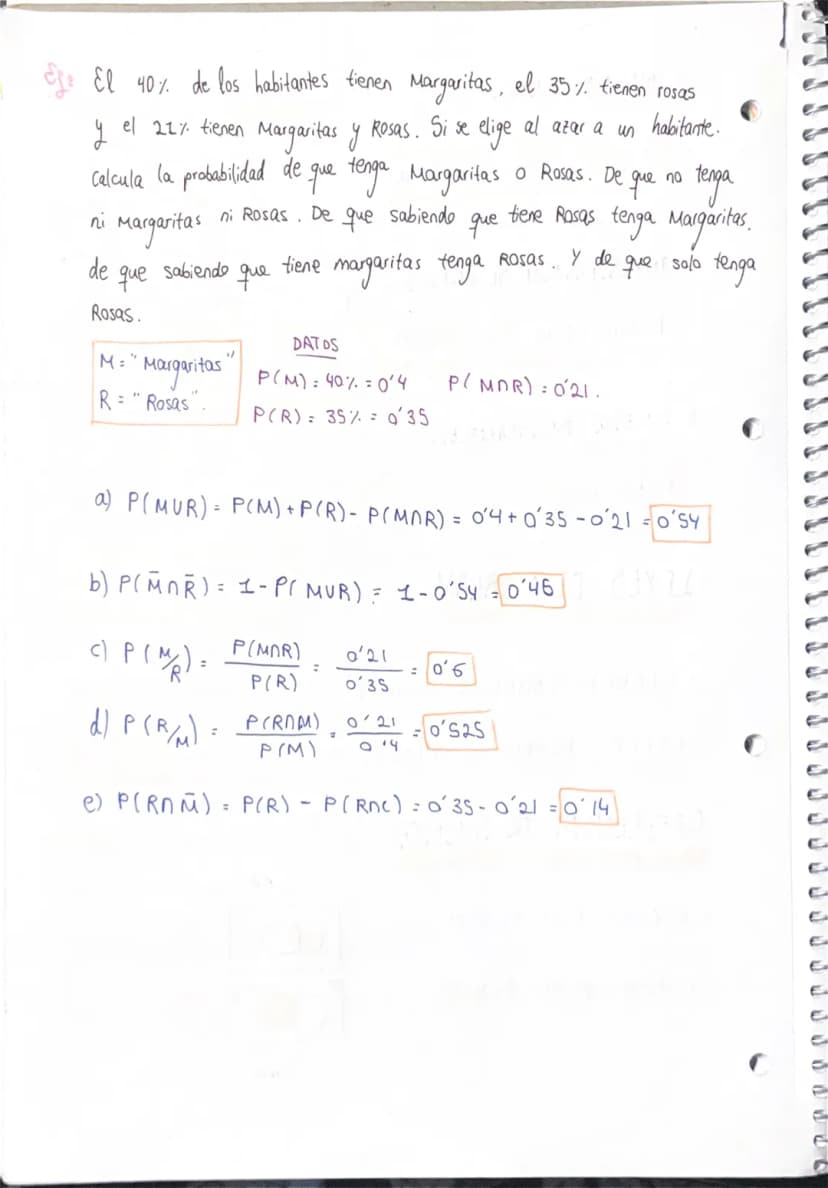 Ej: El 40% de los habitantes tienen Margaritas, el 35% tienen rosas
y el 21% tienen Margaritas y Rosas. Si se elige al azar a un habitante.
Calcula la probabilidad de que tenga Margaritas o Rosas. De que no tenga
ni Margaritas ni Rosas. De que sabiendo que tiene Rosas tenga Margaritas.
de que sabiendo que tiene margaritas tenga Rosas. Y de que solo tenga
Rosas.
DATOS
M = "Margaritas"
R = "Rosas".
P(M) = 40% = 0'4 P(M∩R) = 0'21.
P(R) = 35% = 0'35
a) P(M∪R) = P(M) + P(R) - P(M∩R) = 0'4 + 0'35 - 0'21 = 0'54
b) P(M̄∩R̄) = 1 - P(M∪R) = 1 - 0'54 = 0'46
c) P(M/R) = P(M∩R)/P(R) = 0'21/0'35 = 0'6
d) P(R/M) = P(R∩M)/P(M) = 0'21/0'4 = 0'525
e) P(R∩M̄) = P(R) - P(R∩C) = 0'35 - 0'21 = 0'14